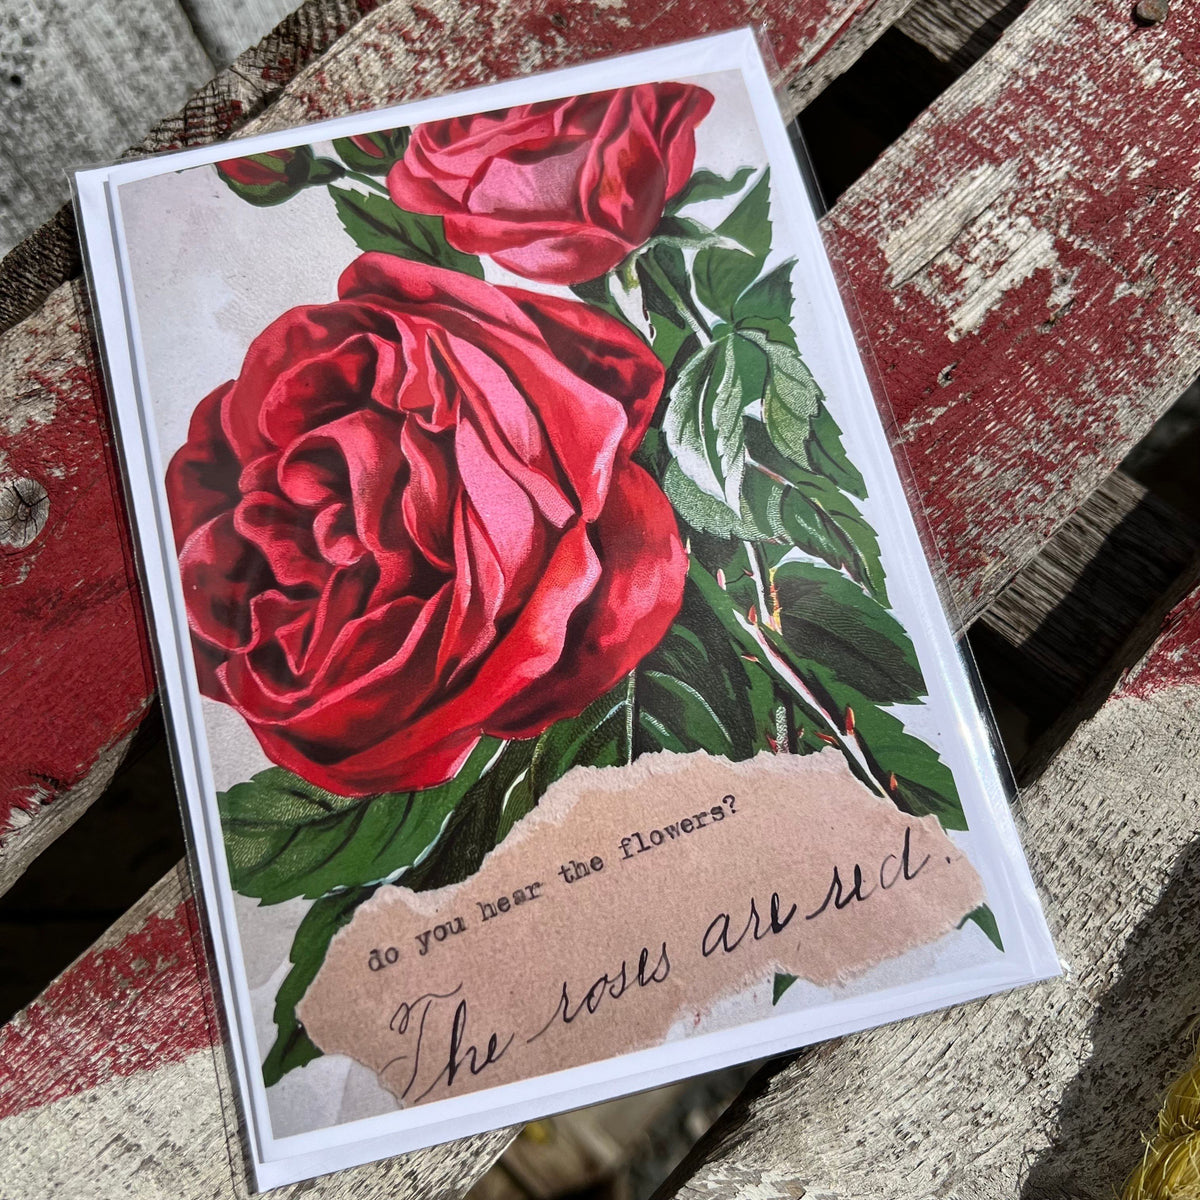 do you hear the flowers?
The roses are red.